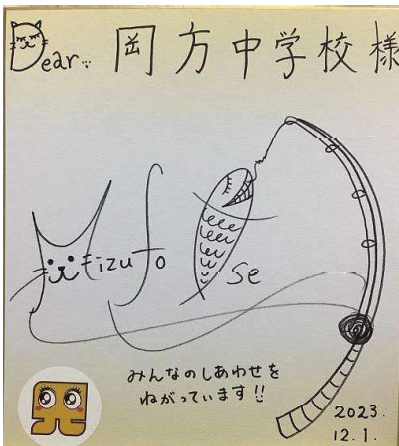 Dear 岡方中学校様
Mizuho Ise
みんなのしあわせを
ねがっています!!
2023.
12.1.